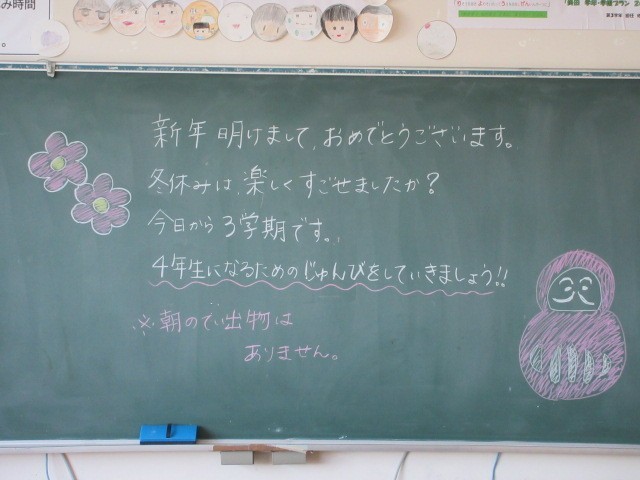 み時間
新年明けまして、おめでとうございます。
冬休みは、楽しくすごせましたか?
今日から3学期です。
4年生になるためのじゅんびをしていきましょう!!
※朝ので出物は
ありません。